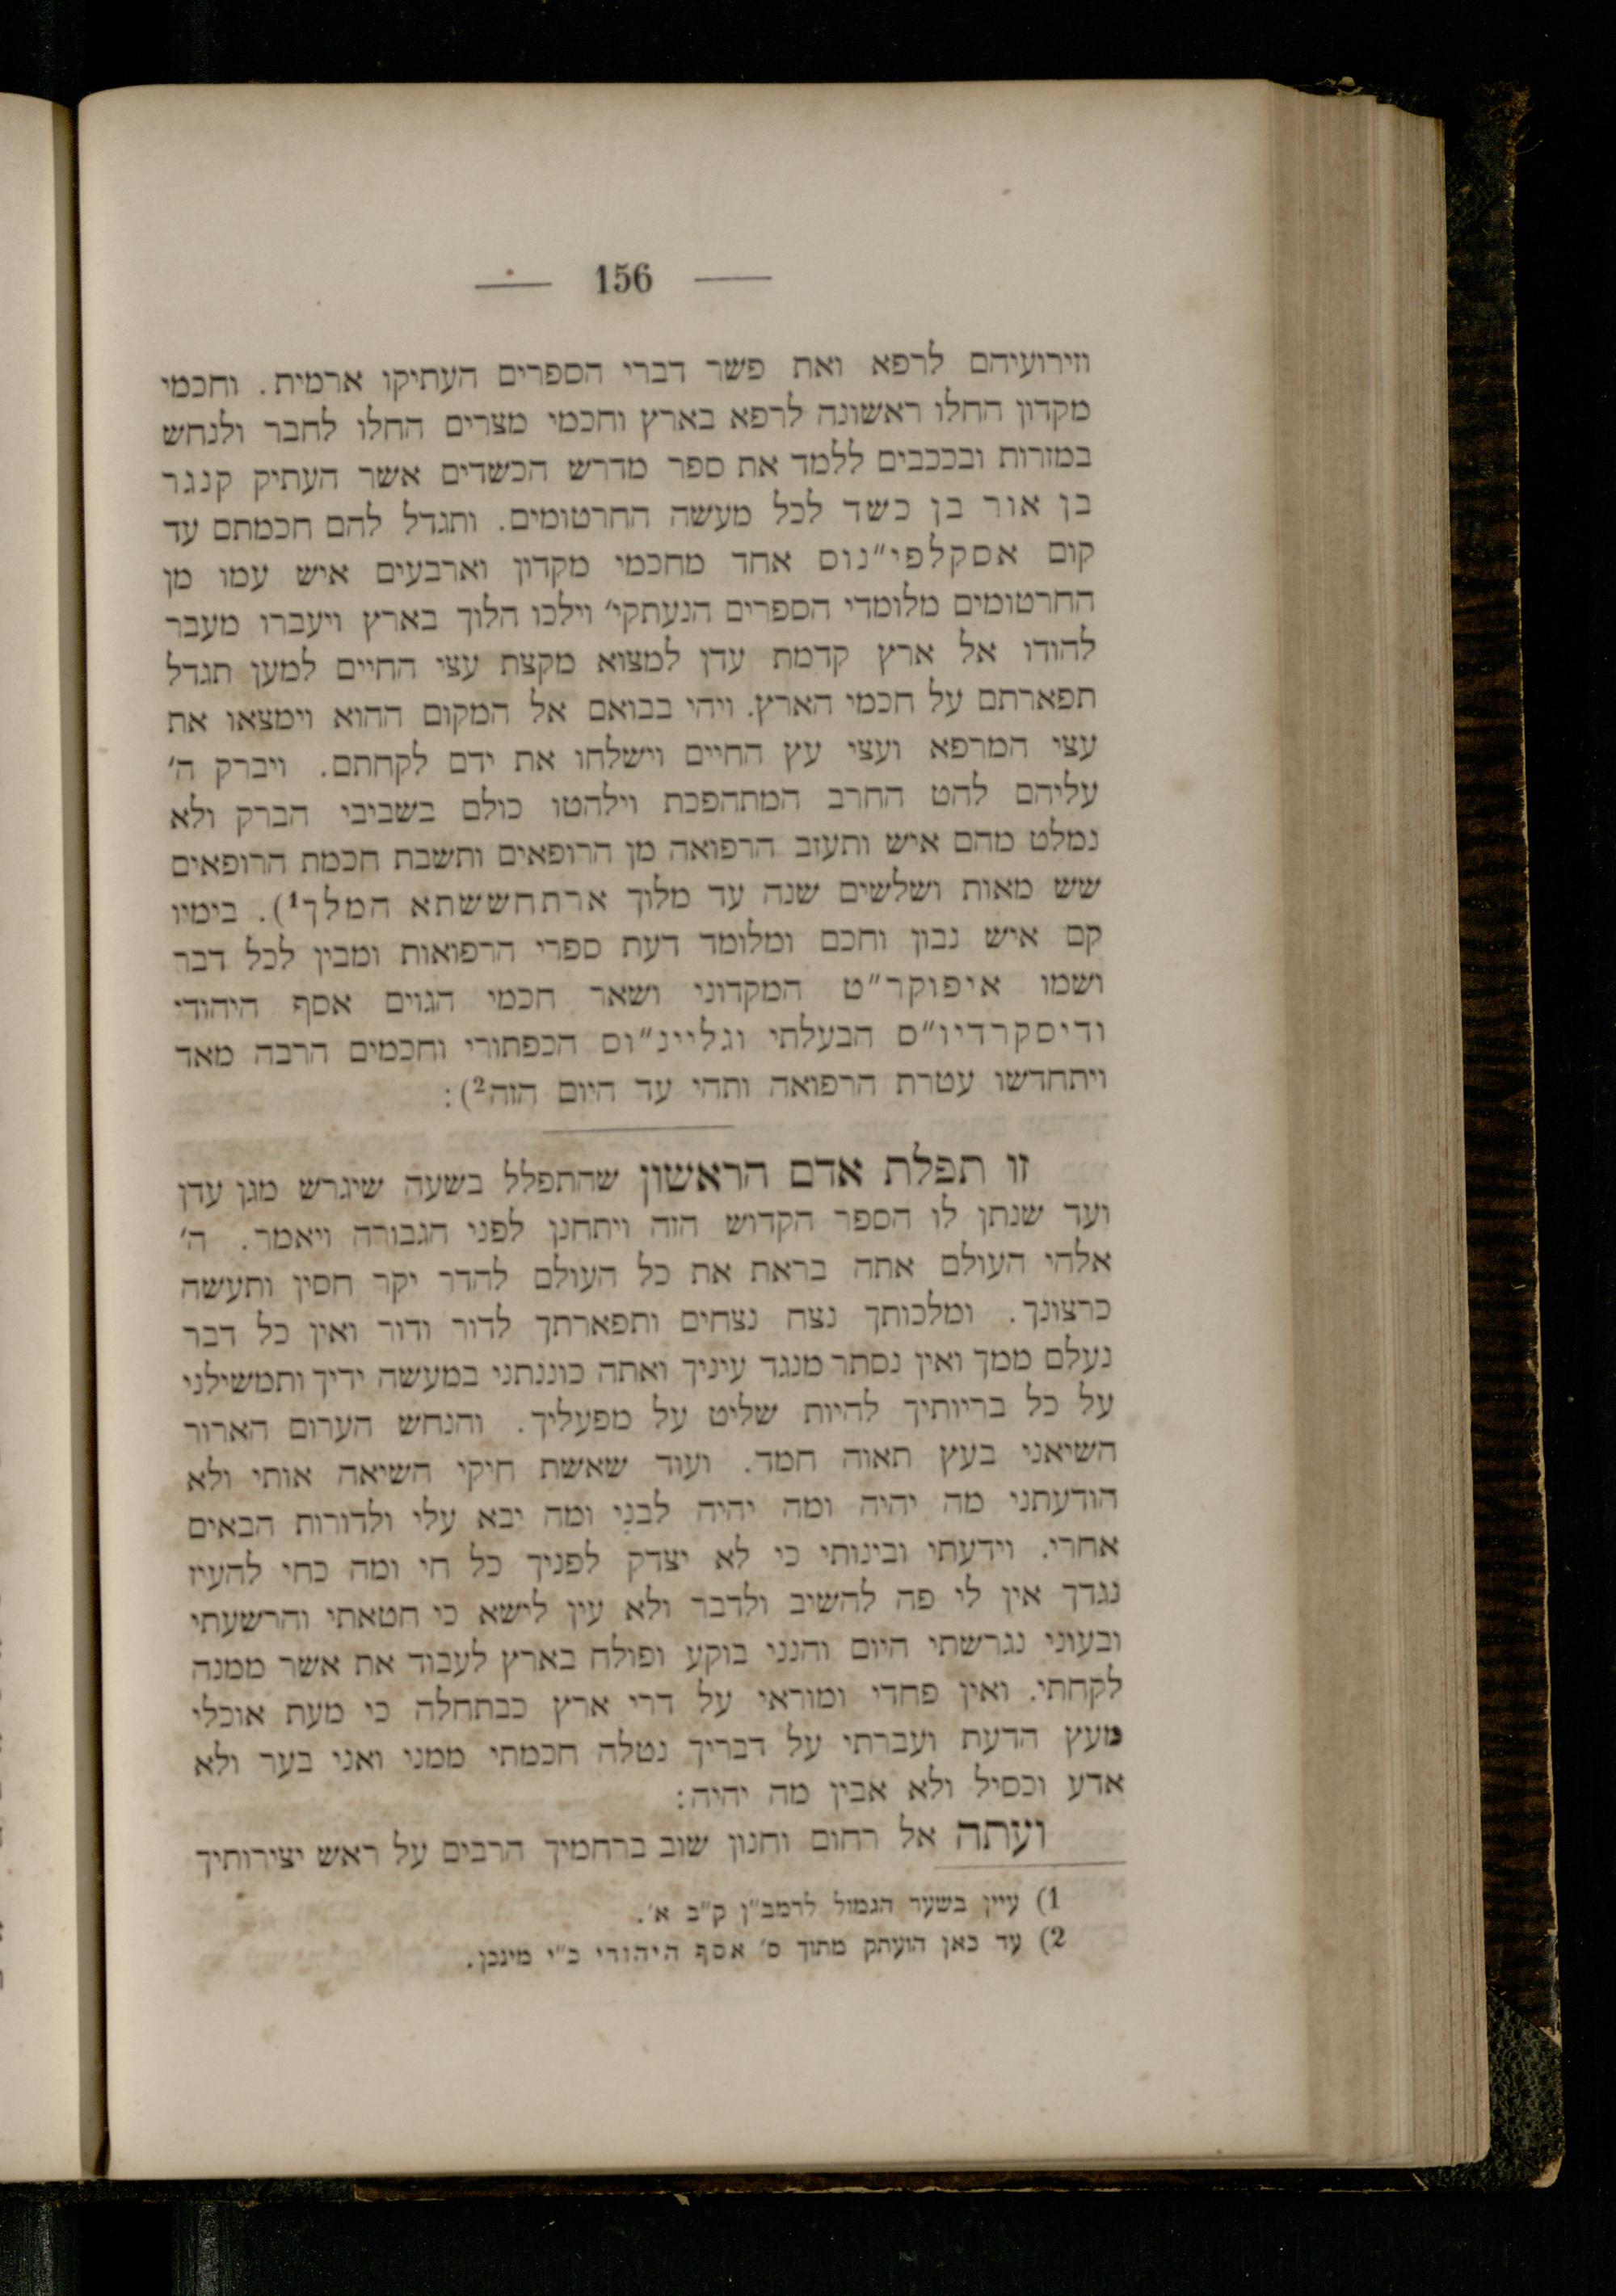 — 156 —
וזירועיהם לרפא ואת פשר דברי הספרים העתיקו ארמית. וחכמי
מקדון החלו ראשונה לרפא בארץ וחכמי מצרים החלו לחבר ולנחש
במזרות ובככבים ללמד את ספר מדרש הכשדים אשר העתיק קנגר
בן אור בן כשד לכל מעשה החרטומים. ותגדל להם חכמתם עד
קום אסקלפי״נוס אחד מחכמי מקדון וארבעים איש עמו מן
החרטומים מלומדי הספרים הנעתקי׳ וילכו הלוך בארץ ויעברו מעבר
להודו אל ארץ קדמת עדן למצוא מקצת עצי החיים למען תגדל
תפארתם על חכמי הארץ. ויהי בבואם אל המקום ההוא וימצאו את
עצי המרפא ועצי עץ החיים וישלחו את ידם לקחתם. ויברק ה׳
עליהם להט החרב המתהפכת וילהטו כולם בשביבי הברק ולא
נמלט מהם איש ותעזב הרפואה מן הרופאים ותשבת חכמת הרופאים
שש מאות ושלשים שנה עד מלוך ארתחששתא המלך1). בימיו
קם איש נבון וחכם ומלומד דעת ספרי הרפואות ומבין לכל דבר
ושמו איפוקר״ט המקדוני ושאר חכמי הגוים אסף היהודי
ודיסקרדיו״ס הבעלתי וגליינ״וס הכפתורי וחכמים הרבה מאד
ויתחדשו עטרת הרפואה ותהי עד היום הזה2):
זו תפלת אדם הראשון שהתפלל בשעה שיגרש מגן עדן
ועד שנתן לו הספר הקדוש הזה ויתחנן לפני הגבורה ויאמר. ה׳
אלהי העולם אתה בראת את כל העולם להדר יקר חסין ותעשה
כרצונך. ומלכותך נצח נצחים ותפארתך לדור ודור ואין כל דבר
נעלם ממך ואין נסתר מנגד עיניך ואתה כוננתני במעשה ידיך ותמשילני
על כל בריותיך להיות שליט על מפעליך. והנחש הערום הארור
השיאני בעץ תאוה חמד. ועוד שאשת חיקי השיאה אותי ולא
הודעתני מה יהיה ומה יהיה לבני ומה יבא עלי ולדורות הבאים
אחרי. וידעתי ובינותי כי לא יצדק לפניך כל חי ומה כחי להעיז
נגדך אין לי פה להשיב ולדבר ולא עין לישא כי חטאתי והרשעתי
ובעוני נגרשתי היום והנני בוקע ופולח בארץ לעבוד את אשר ממנה
לקחתי. ואין פחדי ומוראי על דרי ארץ כבתחלה כי מעת אוכלי
מעץ הדעת ועברתי על דבריך נטלה חכמתי ממני ואני בער ולא
אדע וכסיל ולא אבין מה יהיה:
ועתה אל רחום וחנון שוב ברחמיך הרבים על ראש יצירותיך
1) עיין בשער הגמול לרמב״ן ק״ב א׳.
2) עד כאן הועתק מתוך ס׳ אסף היהודי כ״י מינכן.